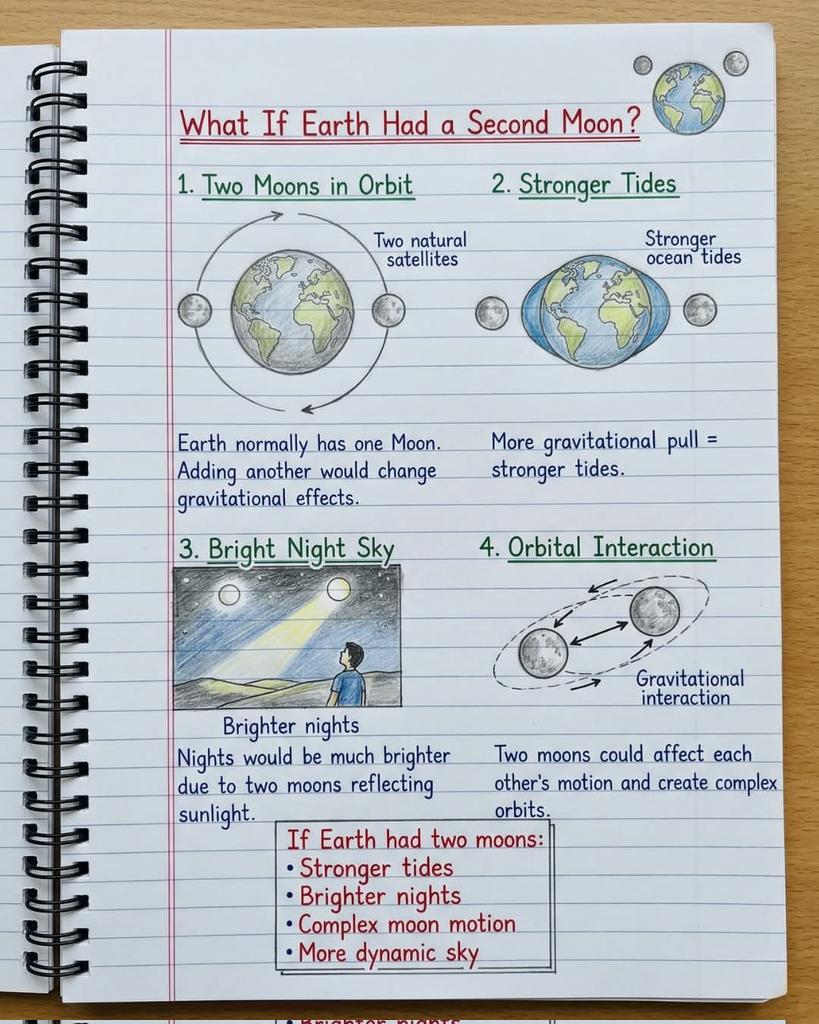 What If Earth Had a Second Moon?
1. Two Moons in Orbit
Two natural
satellites
Earth normally has one Moon.
Adding another would change
gravitational effects.
2. Stronger Tides
Stronger
ocean tides
More gravitational pull =
stronger tides.
3. Bright Night Sky
Brighter nights
Nights would be much brighter
due to two moons reflecting
sunlight.
4. Orbital Interaction
Gravitational
interaction
Two moons could affect each
other's motion and create complex
orbits.
If Earth had two moons:
• Stronger tides
• Brighter nights
• Complex moon motion
• More dynamic sky
• Brighter nights